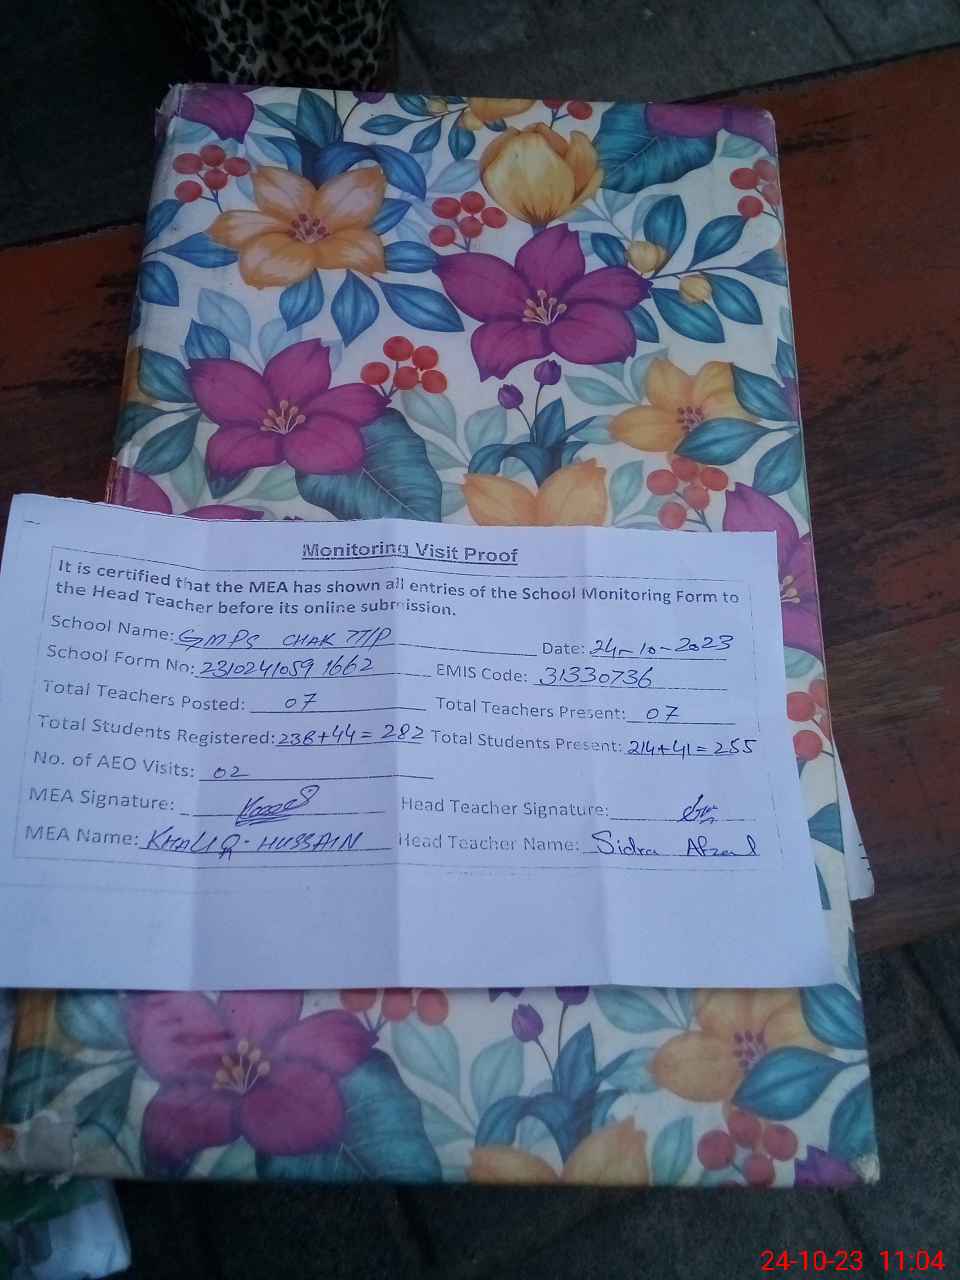 Monitoring Visit Proof
It is certified that the MEA has shown all entries of the School Monitoring Form to
the Head Teacher before its online submission.
School Name: GMPS CHAK 77/P Date: 24-10-2023
School Form No: 2310241059 1662 EMIS Code: 31330736
Total Teachers Posted: 07 Total Teachers Present: 07
Total Students Registered: 238+44= 282 Total Students Present: 214+41=255
No. of AEO Visits: 02
MEA Signature: Head Teacher Signature:
MEA Name: KHALIQ. HUSSAIN Head Teacher Name: Sidra Afzal
24-10-23 11:04